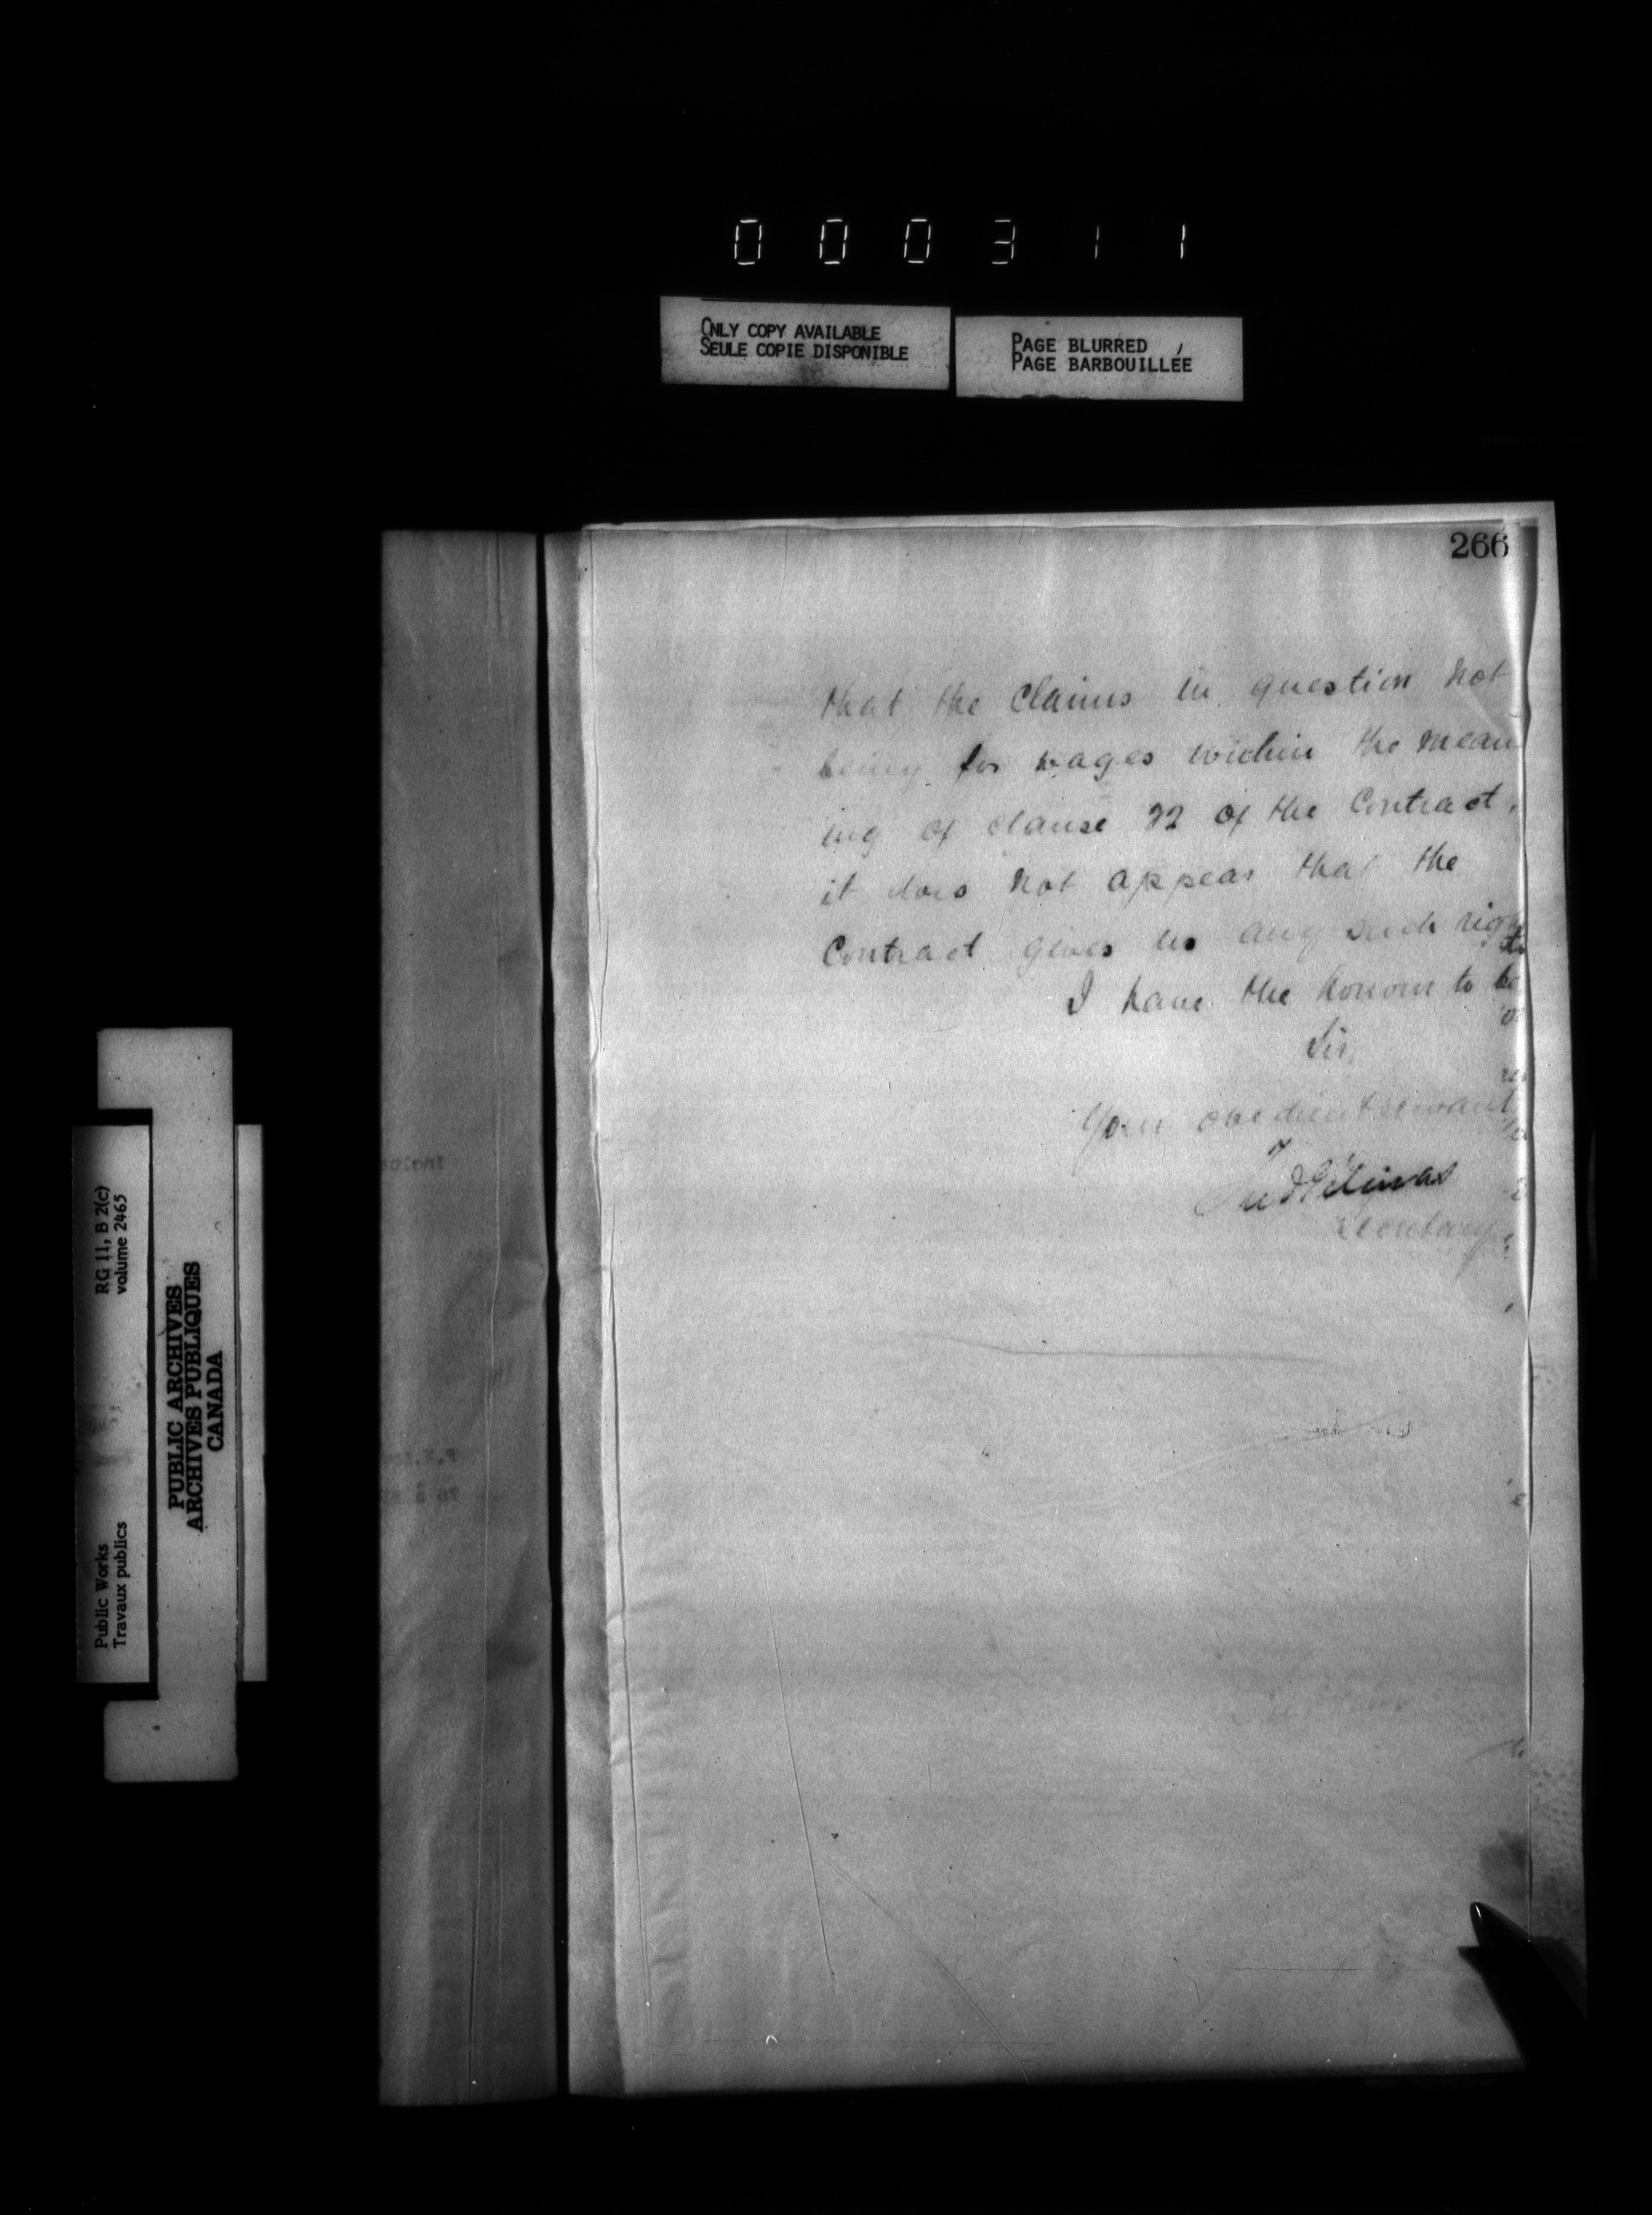 000311
ONLY COPY AVAILABLE
SEULE COPIE DISPONIBLE
PAGE BLURRED
PAGE BARBOUILLÉE
266
that the Claims in question not
being for wages within the mean
ing of clause 22 of the Contract,
it does not appear that the
Contract gives us any such right
I have the honour to be
Sir,
Your obedient servant
Fred Gélinas
Secretary
RG 11, B 2(c)
volume 2465
PUBLIC ARCHIVES
ARCHIVES PUBLIQUES
CANADA
Public Works
Travaux publics